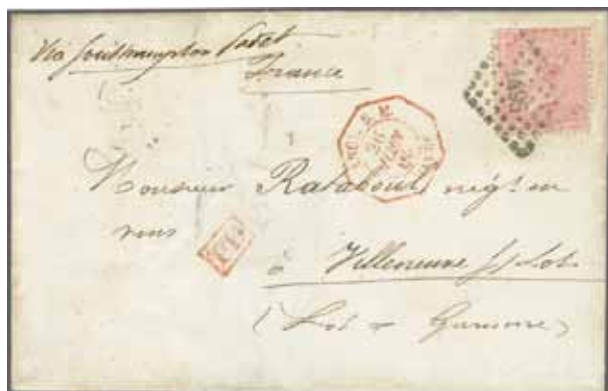 Via Southampton Paket
France
Monsieur Ratabout négt en
vins
à Villeneuve s/ Lot
(Lot & Garonne)